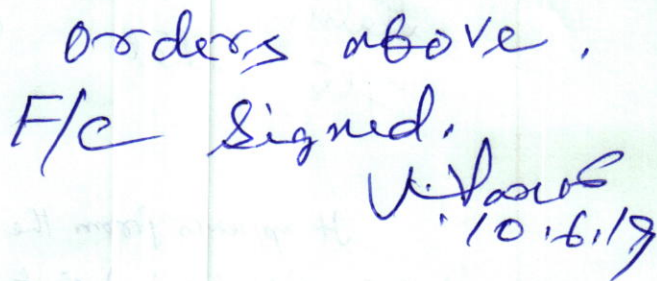 orders above.
F/c Signed.
10.6.19